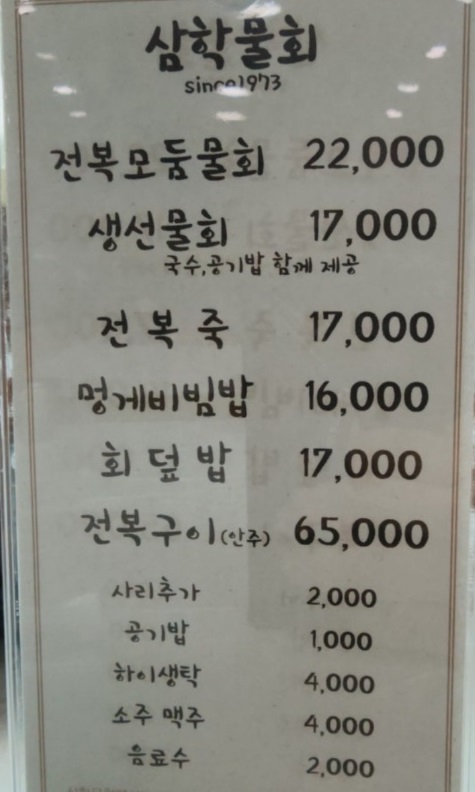 삼학물회
since1973
전복모둠물회 22,000
생선물회 17,000
국수,공기밥 함께 제공
전복죽 17,000
멍게비빔밥 16,000
회덮밥 17,000
전복구이(안주) 65,000
사리추가 2,000
공기밥 1,000
하이생탁 4,000
소주 맥주 4,000
음료수 2,000